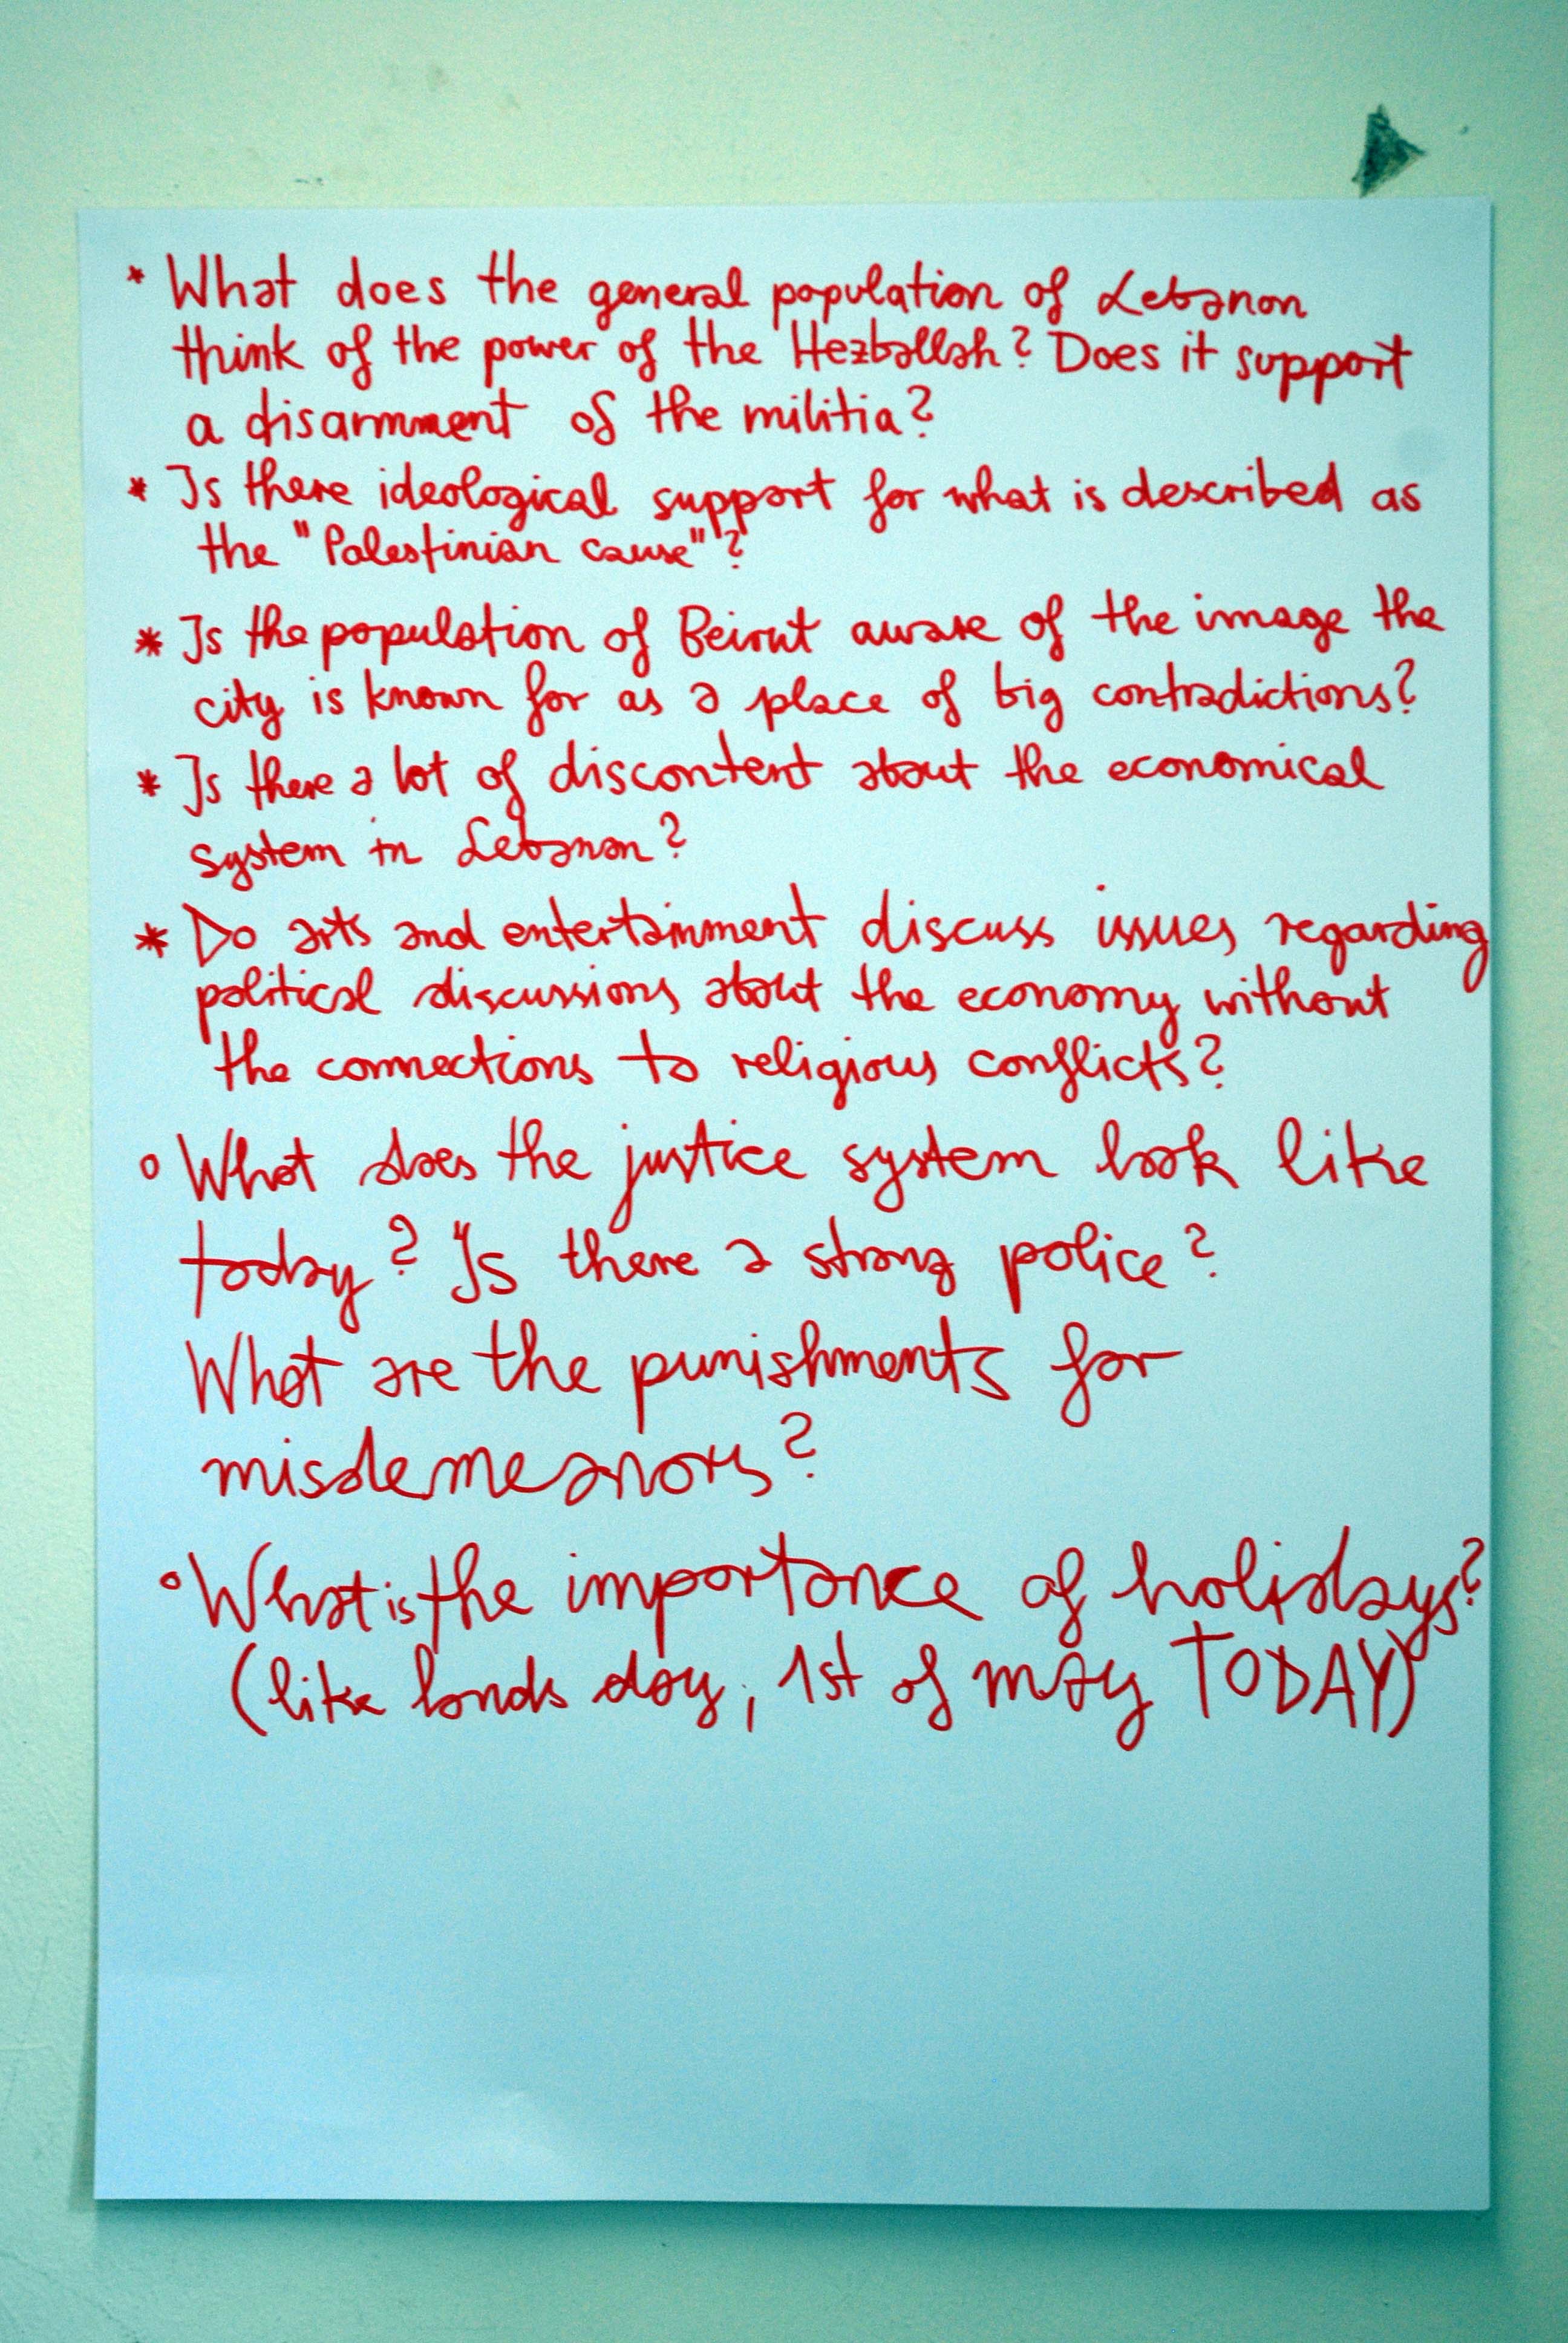 * What does the general population of Lebanon
think of the power of the Hezballah? Does it support
a disarmment of the militia?
* Is there ideological support for what is described as
the "Palestinian cause"?
* Is the population of Beirut aware of the image the
city is known for as a place of big contradictions?
* Is there a lot of discontent about the economical
system in Lebanon?
* Do arts and entertainment discuss issues regarding
political discussions about the economy without
the connections to religious conflicts?
° What does the justice system look like
today? Is there a strong police?
What are the punishments for
misdemeanors?
° What is the importance of holidays?
(like lands day, 1st of may TODAY)